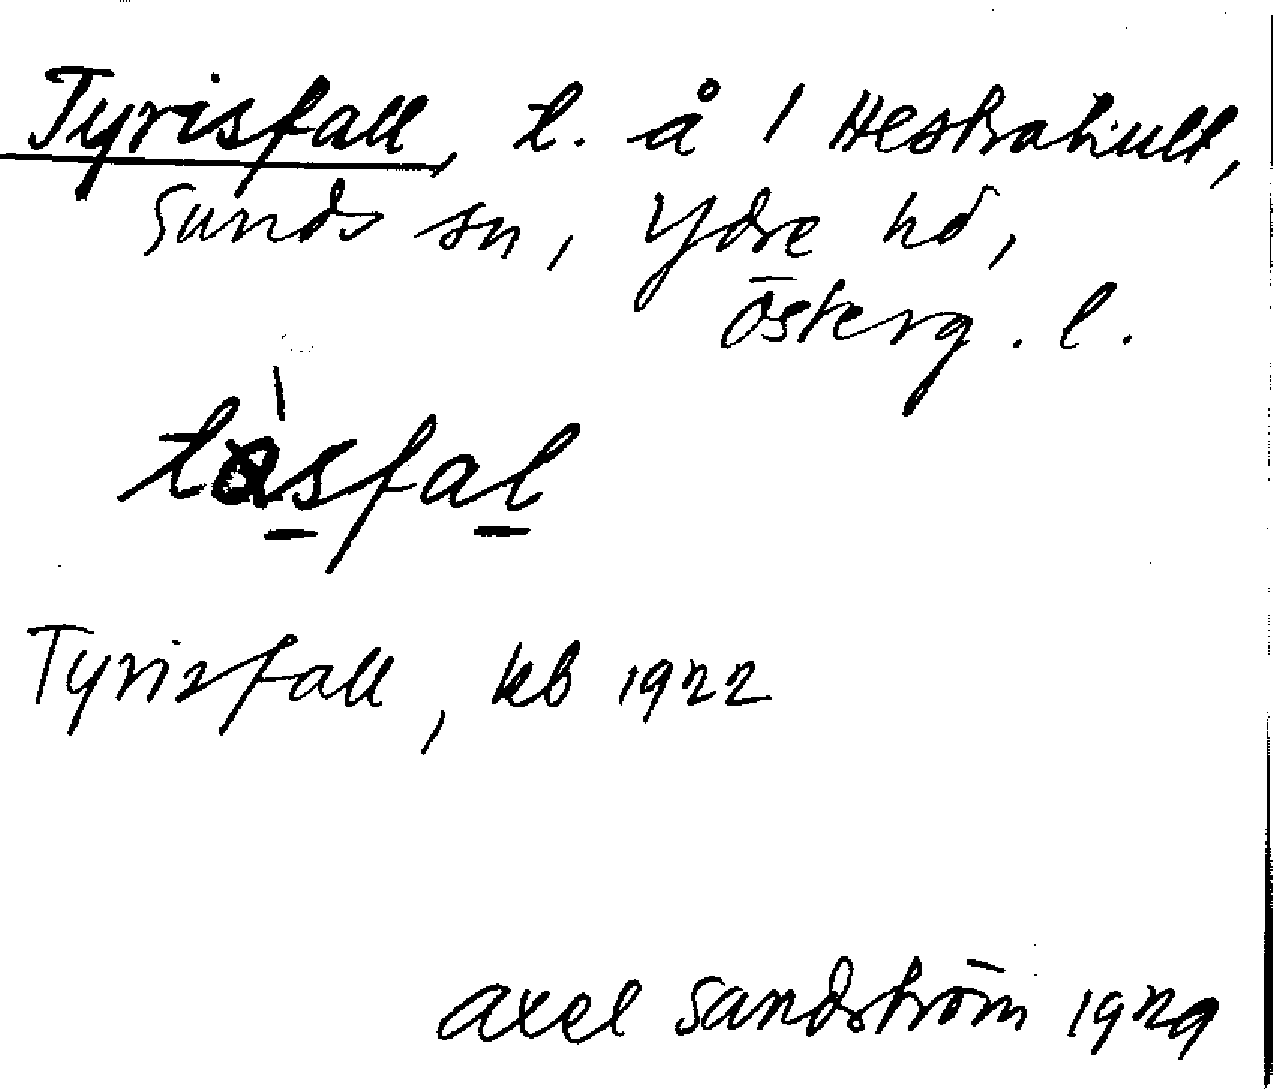 Tyrisfall, t. å 1 Hestrahult,
Sunds sn, Ydre hd,
Österg. l.
tàsfal
Tyrisfall, kb 1922
Axel Sandström 1929